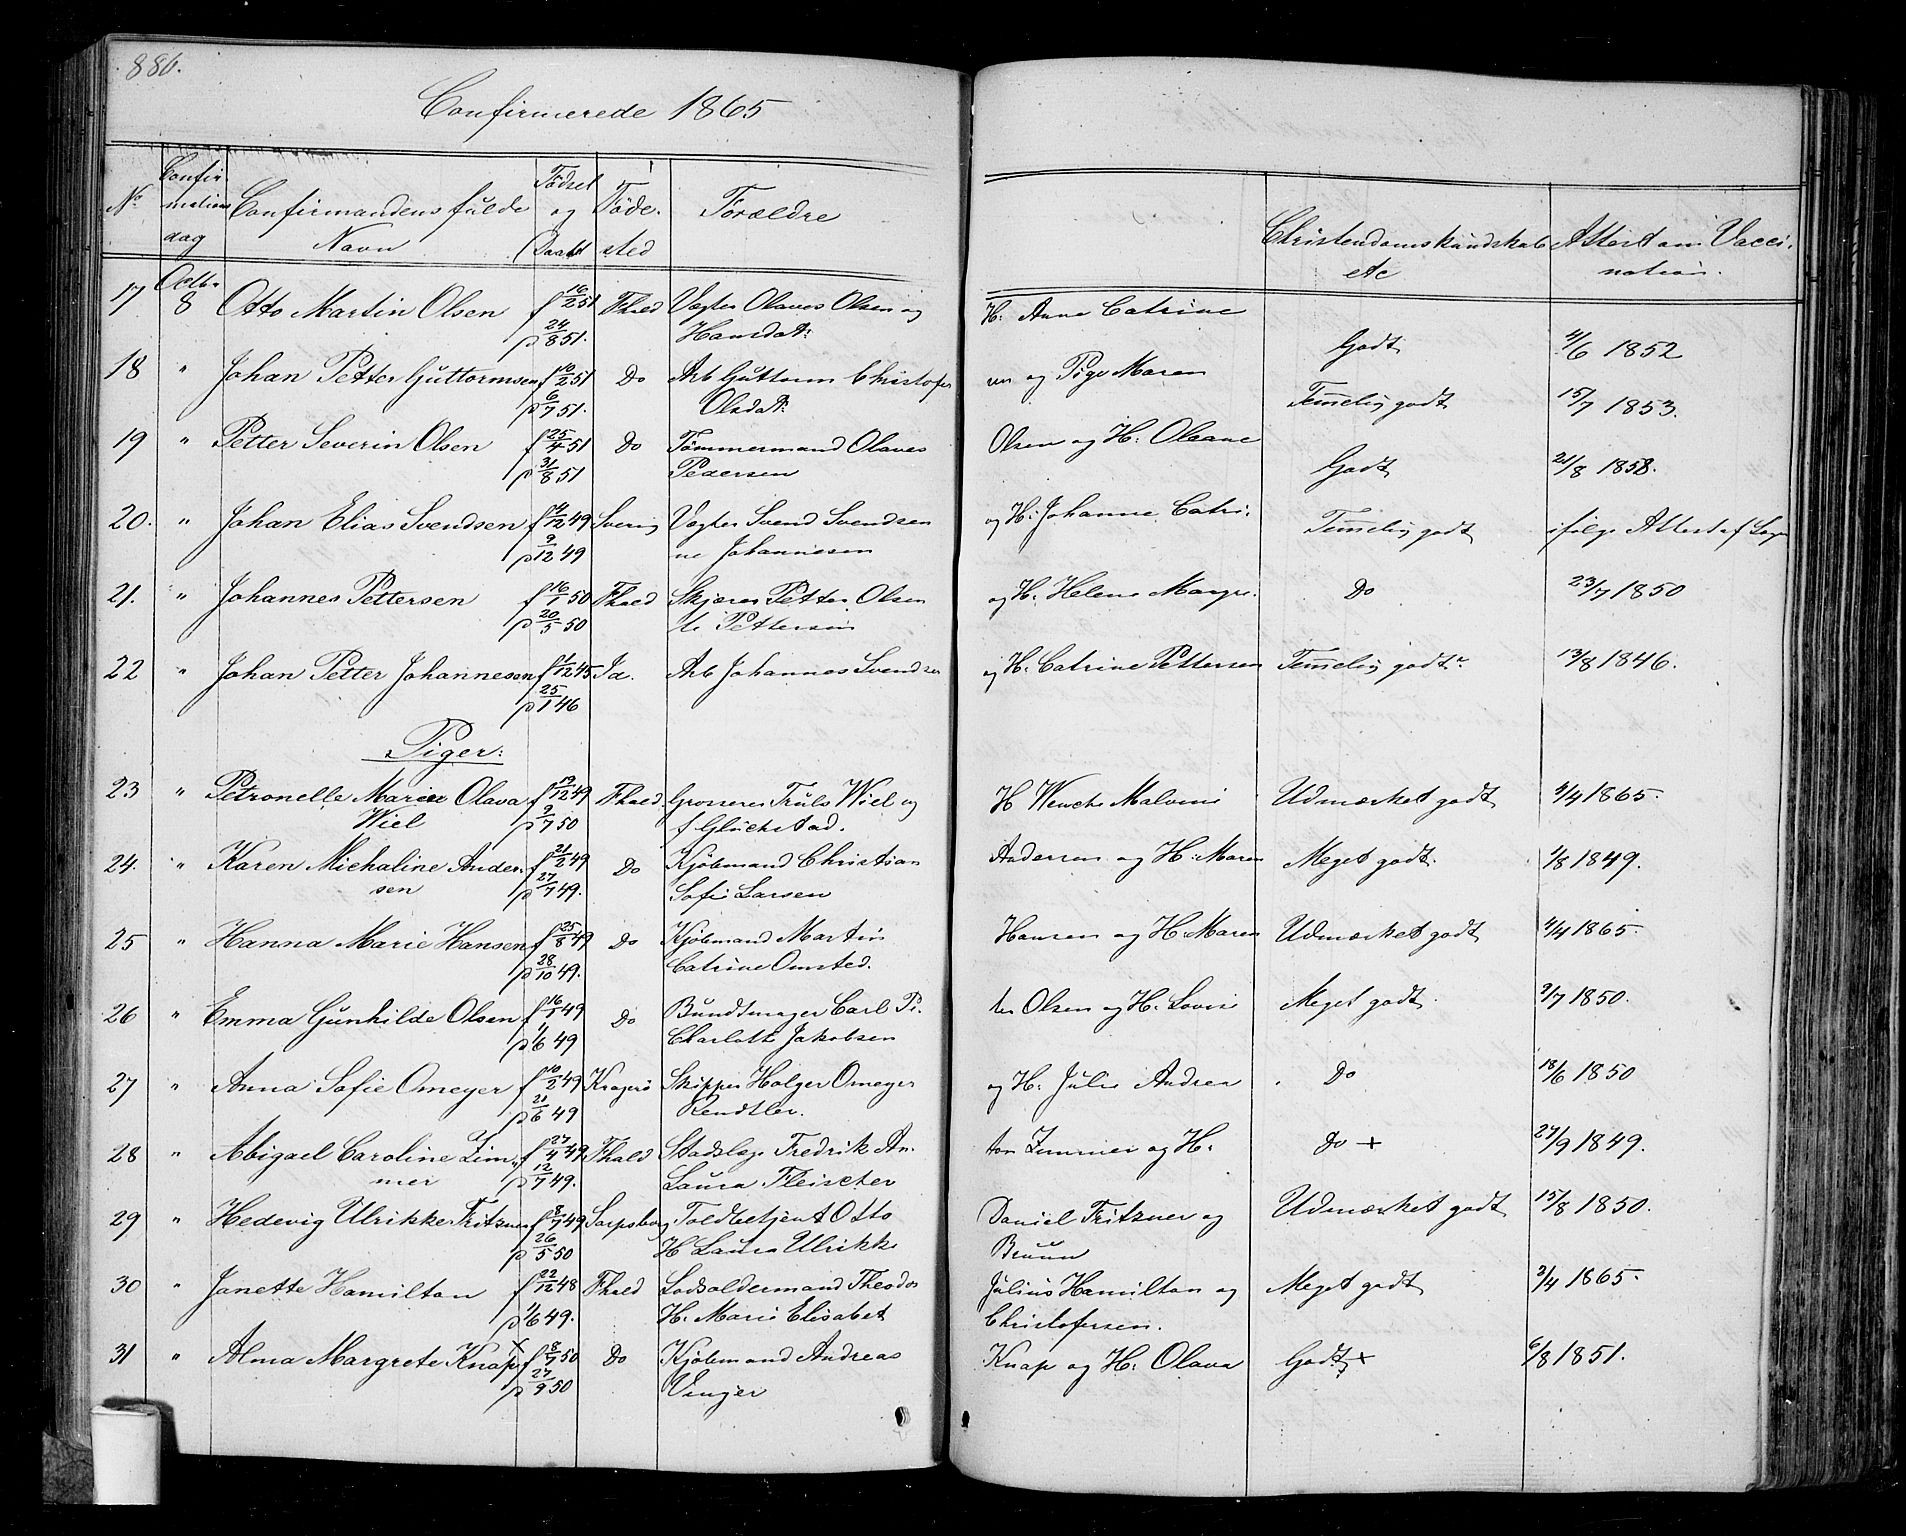 886.
Confirmerede 1865
No Confirmations dag Confirmandens fulde Navn Fødsel og Daab Fødested Forældre Christendomskundskab etc Attest om Vaccination.
17 Octbr 8 Otto Martin Olsen f 16/2 51 Fhald Vægter Olaves Olsen og H: Anne Catrine
p 24/8 51. Hansdatt: Godt 4/6 1852
18 " Johan Petter Guttormsen f 10/2 51 Do Arb Guttorm Christofersen og Pige Maren
p 6/7 51. Olsdatt: Temelig godt 15/7 1853.
19 " Petter Severin Olsen f 25/4 51 Do Tømmermand Olaves Olsen og H: Olaane
p 31/8 51 Pedersen Godt 21/8 1858.
20. " Johan Elias Svendsen f 4/12 49 Sverig Vægter Svend Svendsen og H: Johanne Catri-
p 9/12 49 ne Johannesen Temelig godt ifølge Attest af
21. " Johannes Pettersen f 16/1 50 Fhald Skjærer Petter Olsen og H: Helene Margre-
p 20/5 50 te Pettersen Do 23/7 1850
22 " Johan Petter Johannesen f 1/12 45 Id. Arb Johannes Svendsen og H: Catrine Pettersen Temelig godt 13/8 1846.
p 25/1 46
Piger:
23 " Petronelle Marie Olava f 19/12 49 Fhald. Grosserer Truls Wiel og H Wenche Malvine Udmærket godt 4/4 1865.
Wiel p 9/7 50 f Glückstad.
24. " Karen Michaline Ander- f 21/2 49 Do Kjøbmand Christian Andersen og H: Maren Meget godt. 1/8 1849.
sen p 27/7 49. Sofie Larsen
25 " Hanna Marie Hansen f 25/8 49 Do Kjøbmand Martin Hansen og H: Maren Udmærket godt 4/4 1865.
p 28/10 49. Catrine Omsted.
26 " Emma Gunhilde Olsen f 16/1 49 Do Bundtmager Carl Pe- ter Olsen og H: Lovise Meget godt. 9/7 1850.
p 1/6 49 Charlotte Jakobsen
27 " Anna Sofie Omeyer f 10/2 49 Kragerø Skipper Holger Omeyer og H: Julie Andrea Do 18/6 1850
p 21/6 49 Rendtler.
28 " Abigael Caroline Zim- f 27/4 49 Fhald Stadslæge Fredrik An- ton Zimmer og H: Do + 27/9 1849.
mer p 12/7 49. Laura Fleischer
29 " Hedevig Ulrikke Fritzner f 8/7 49 Sarpsborg Toldbetjent Otto Daniel Fritzner og Udmærket godt 15/8 1850.
p 26/5 50 H Laura Ulrikke Bruun
30 " Janette Hamilton f 22/12 48 Fhald Lodsoldermand Theodor Julius Hamilton og Meget godt 3/4 1865.
p 1/6 49. H: Marie Elisabet Christofersen.
31 " Alma Margrete Knap x f 8/7 50 Do Kjøbmand Andreas Knap og H: Olava Godt + 6/8 1851.
p 27/9 50 Vinger